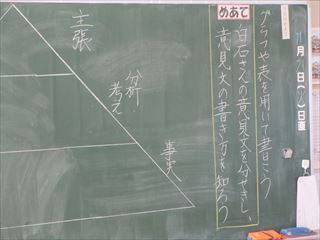 月 日( )日直
グラフや表を用いて書こう
めあて
白石さんの意見文を分せきし、
意見文の書き方を知ろう
主張
分析
考え
事実